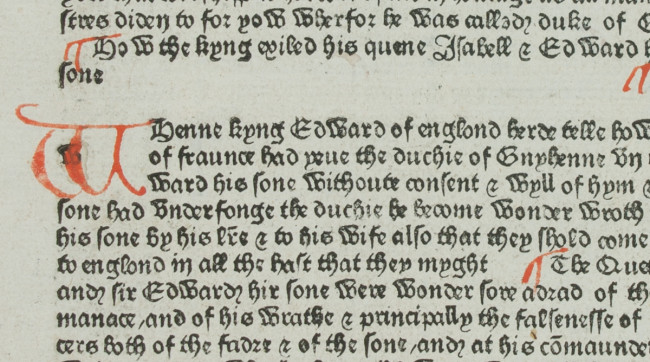 stres diden to for yow wherfor he was called duke of
¶ How the kyng exiled his quene Isabell ⁊ Edward
sone
Whenne kyng Edward of englond herde telle how
w of fraunce had yeue the duchie of Gnyhenne vn
ward his sone withoute consent ⁊ wyll of hym ⁊
sone had vnderfonge the duchie he become wonder wroth
his sone by his lr̄e ⁊ to his wife also that they shold come
to englond in all the hast that they myght ¶ The Que
and sir Edward hir sone were wonder sore adrad of th
manace / and of his wrathe ⁊ principally the falsenesse of
cers both of the fadre ⁊ of the sone / and at his cōmaunde